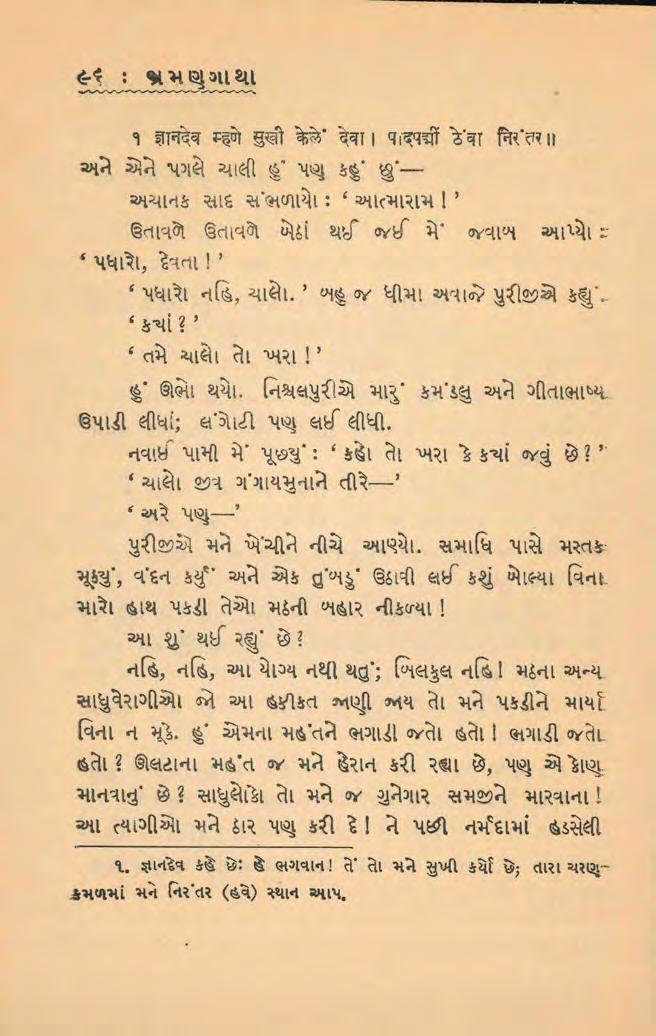 ૯૬ : ભ્રમણગાથા
૧ ज्ञानदेव म्हणे सुखी केलें देवा। पादपद्मीं ठेवा निरंतर॥
અને એને પગલે ચાલી હું પણ કહું છું—
અચાનક સાદ સંભળાયો : ‘ આત્મારામ ! ’
ઉતાવળે ઉતાવળે બેઠાં થઈ જઈ મેં જવાબ આપ્યો :
‘ પધારો, દેવતા ! ’
‘ પધારો નહિ, ચાલો. ’ બહુ જ ધીમા અવાજે પુરીજીએ કહ્યું.
‘ ક્યાં ? ’
‘ તમે ચાલો તો ખરા ! ’
હું ઊભો થયો. નિશ્ચલપુરીએ મારું કમંડલુ અને ગીતાભાષ્ય
ઉપાડી લીધાં; લંગોટી પણ લઈ લીધી.
નવાઈ પામી મેં પૂછ્યું : ‘ કહો તો ખરા કે ક્યાં જવું છે ? ’
‘ ચાલો જીવ ગંગાયમુનાને તીરે—’
‘ અરે પણ—’
પુરીજીએ મને ખેંચીને નીચે આણ્યો. સમાધિ પાસે મસ્તક
મૂક્યું, વંદન કર્યું અને એક તુંબડું ઉઠાવી લઈ કશું બોલ્યા વિના
મારો હાથ પકડી તેઓ મઠની બહાર નીકળ્યા !
આ શું થઈ રહ્યું છે ?
નહિ, નહિ, આ યોગ્ય નથી થતું; બિલકુલ નહિ ! મઠના અન્ય
સાધુવેરાગીઓ જો આ હકીકત જાણી જાય તો મને પકડીને માર્યા
વિના ન મૂકે. હું એમના મહંતને ભગાડી જતો હતો ! ભગાડી જતો
હતો ? ઊલટાના મહંત જ મને હેરાન કરી રહ્યા છે, પણ એ કોણ
માનવાનું છે ? સાધુલોકો તો મને જ ગુનેગાર સમજીને મારવાના !
આ ત્યાગીઓ મને ઠાર પણ કરી દે ! ને પછી નર્મદામાં હડસેલી
૧. જ્ઞાનદેવ કહે છેઃ હે ભગવાન! તેં તો મને સુખી કર્યો છે; તારા ચરણ-
કમળમાં મને નિરંતર (હવે) સ્થાન આપ.